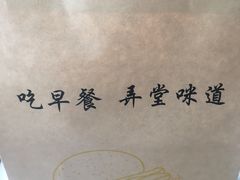 吃早餐 弄堂咪道